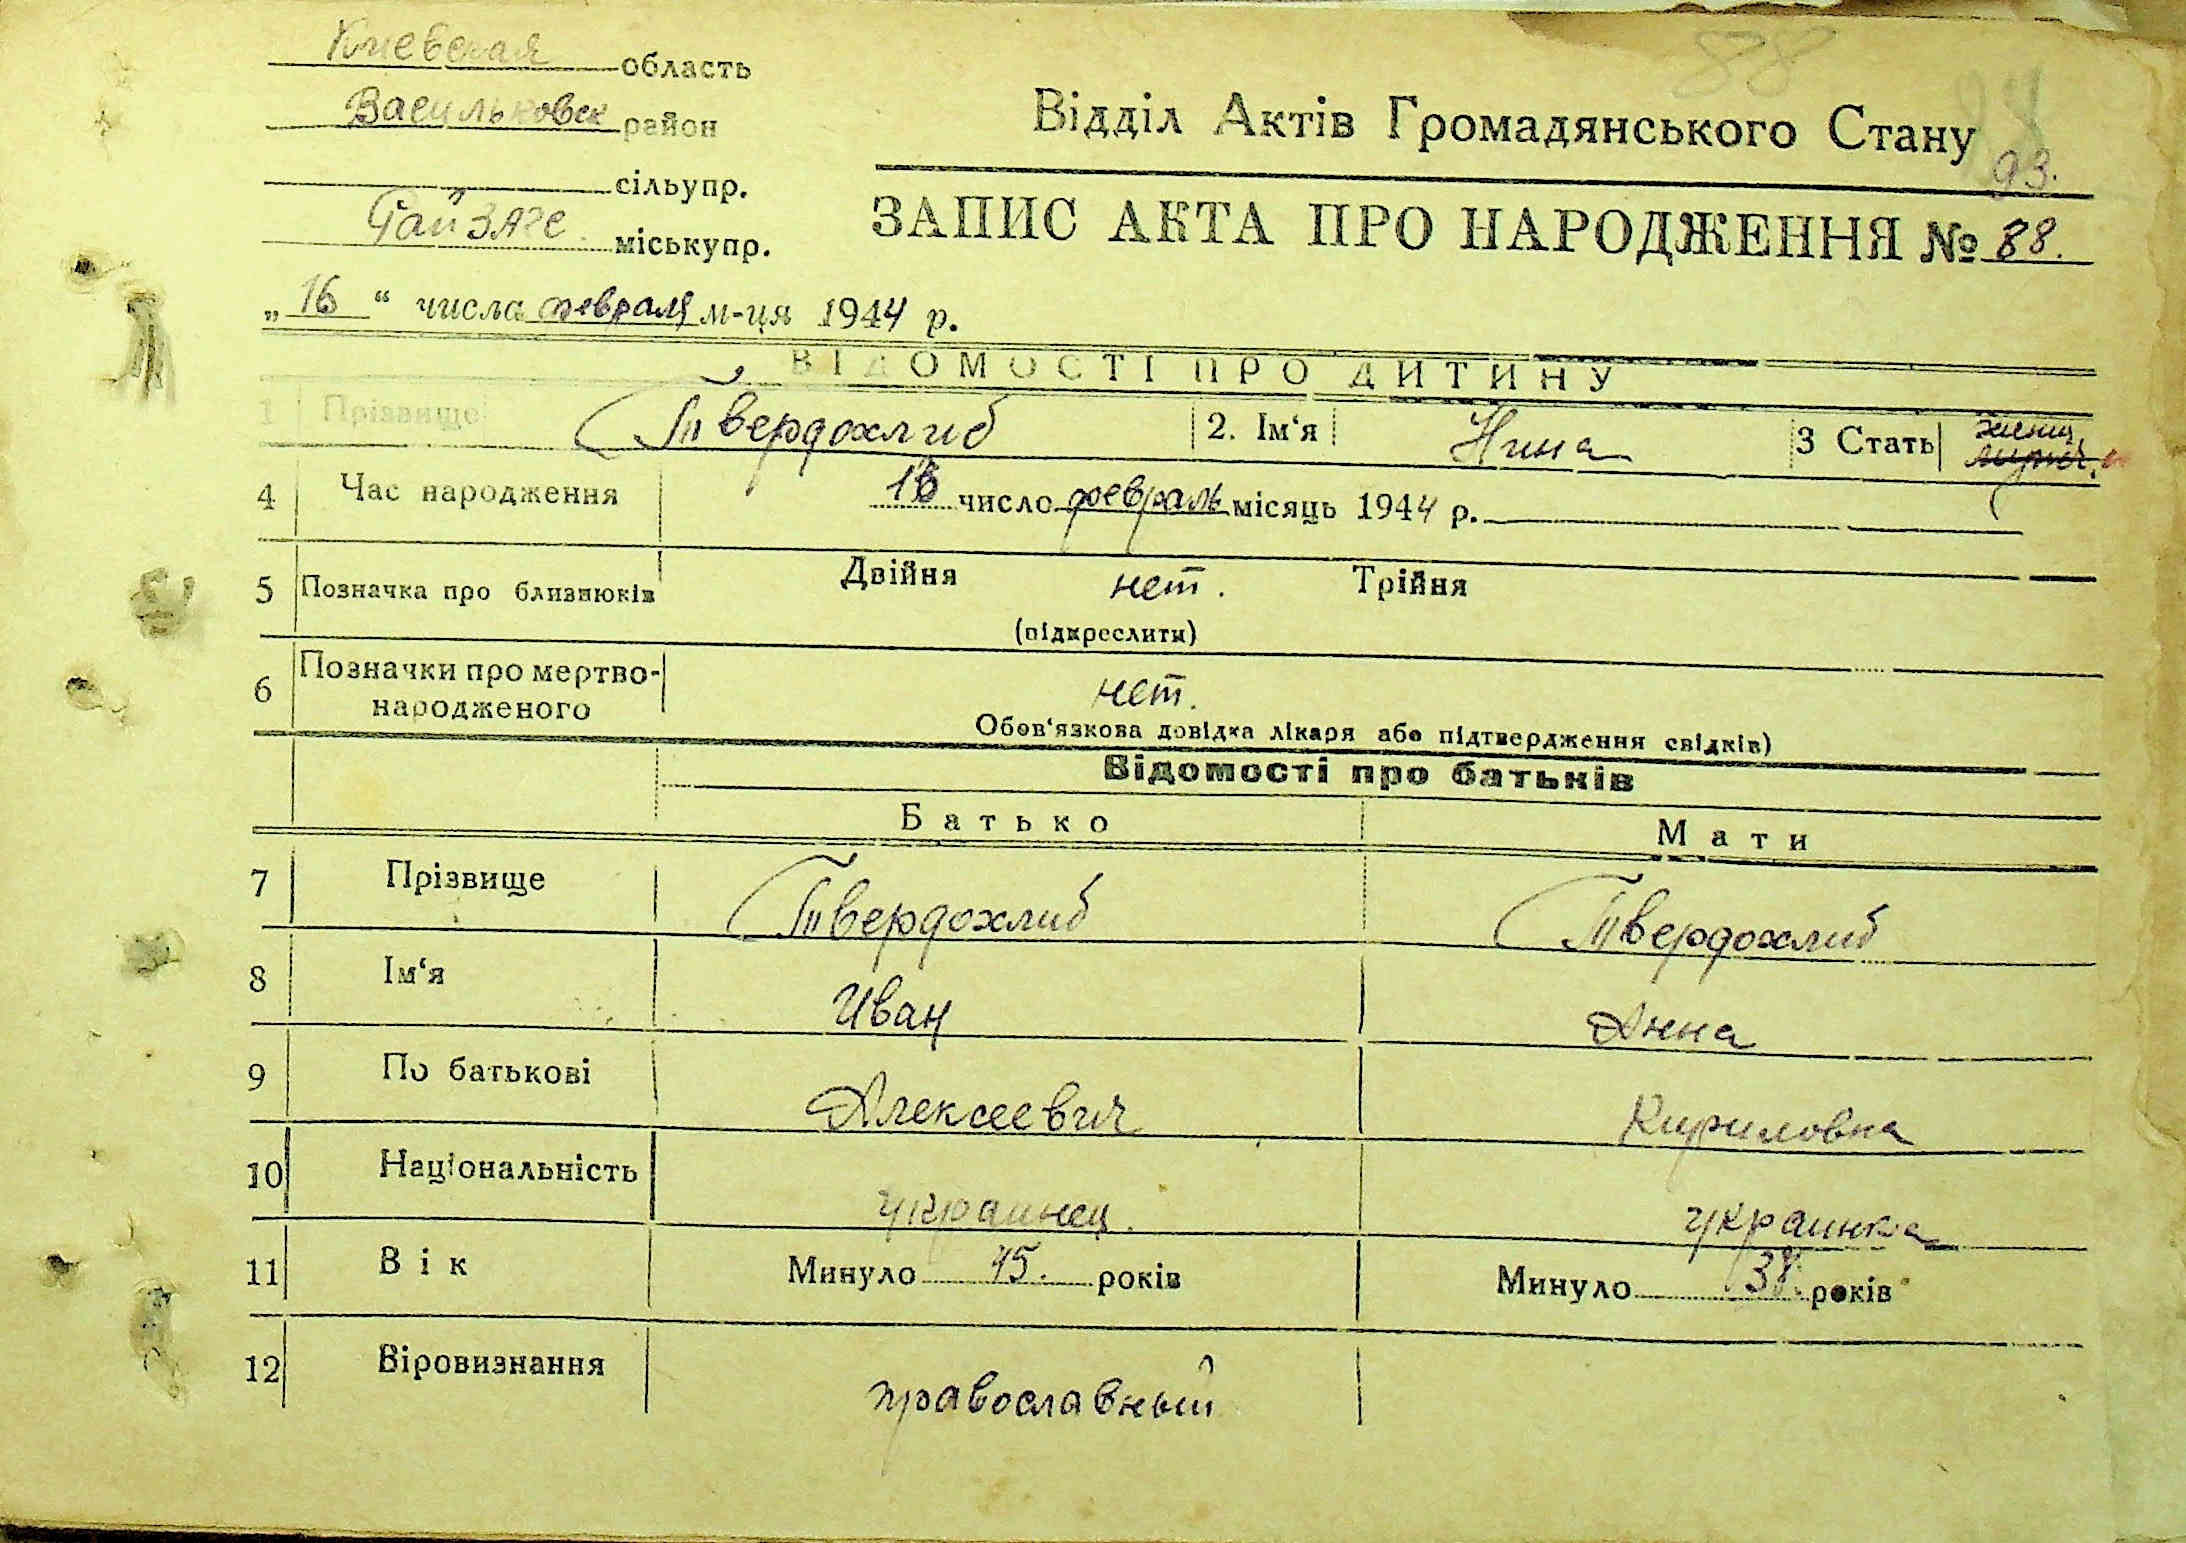 Киевская область
Васильковск район
сільупр.
Рай ЗАГС міськупр.
88
Відділ Актів Громадянського Стану
93.
ЗАПИС АКТА ПРО НАРОДЖЕННЯ № 88.
„16“ числа февраля м-ця 1944 р.
ВІДОМОСТІ ПРО ДИТИНУ
1 Прізвище Твердохлиб 2. Ім‘я Нина 3 Стать женщ.
4 Час народження число февраль місяць 1944 р.
5 Позначка про близнюків Двійня нет. Трійня
(підкреслити)
6 Позначки про мертво-
народженого нет.
Обов‘язкова довідка лікаря або підтвердження свідків)
Відомості про батьків
Батько Мати
7 Прізвище Твердохлиб Твердохлиб
8 Ім‘я Иван Анна
9 По батькові Алексеевич Кириловна
10 Національність украинец. украинка
11 Вік Минуло 45. років Минуло 38. років
12 Віровизнання православный